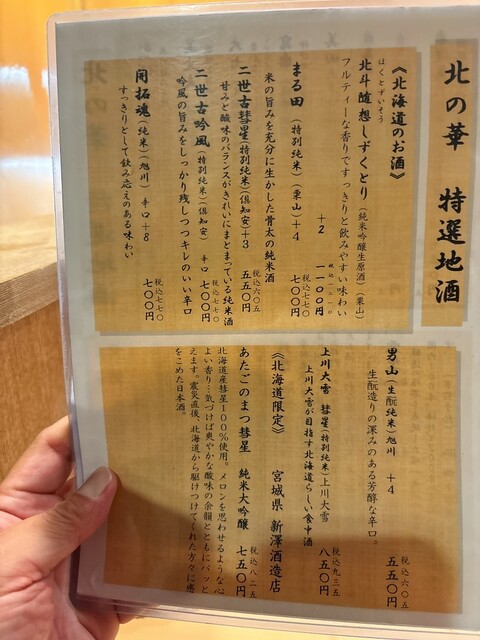 北の華　特選地酒
《北海道のお酒》
ほくとずいそう
北斗随想しずくとり（純米吟醸生原酒）（栗山）
フルティーな香りですっきりと飲みやすい味わい
＋2　一一〇〇円
まる田（特別純米）（栗山）＋4　税込七七〇　七〇〇円
米の旨みを充分に生かした骨太の純米酒
二世古彗星（特別純米）（倶知安）＋3　税込六〇五　五五〇円
甘みと酸味のバランスがきれいにまとまっている純米酒
二世古吟風（特別純米）（倶知安）　辛口　税込七七〇　七〇〇円
吟風の旨みをしっかり残しつつキレのいい辛口
開拓魂（純米）（旭川）　辛口＋8　税込七七〇　七〇〇円
すっきりとして飲み応えのある味わい
男山（生酛純米）旭川　＋4　税込六〇五　五五〇円
生酛造りの深みのある芳醇な辛口。
上川大雪　彗星（特別純米）上川大雪　税込九三五　八五〇円
上川大雪が目指す北海道らしい食中酒
《北海道限定》　宮城県　新澤酒造店
あたごのまつ彗星　純米大吟醸　税込八二五　七五〇円
北海道産彗星100％使用。メロンを思わせるような心
よい香り…気づけば爽やかな酸味の余韻とともにパッと
える。震災直後、北海道から駆けつけてくれた方々に感
をこめた日本酒。